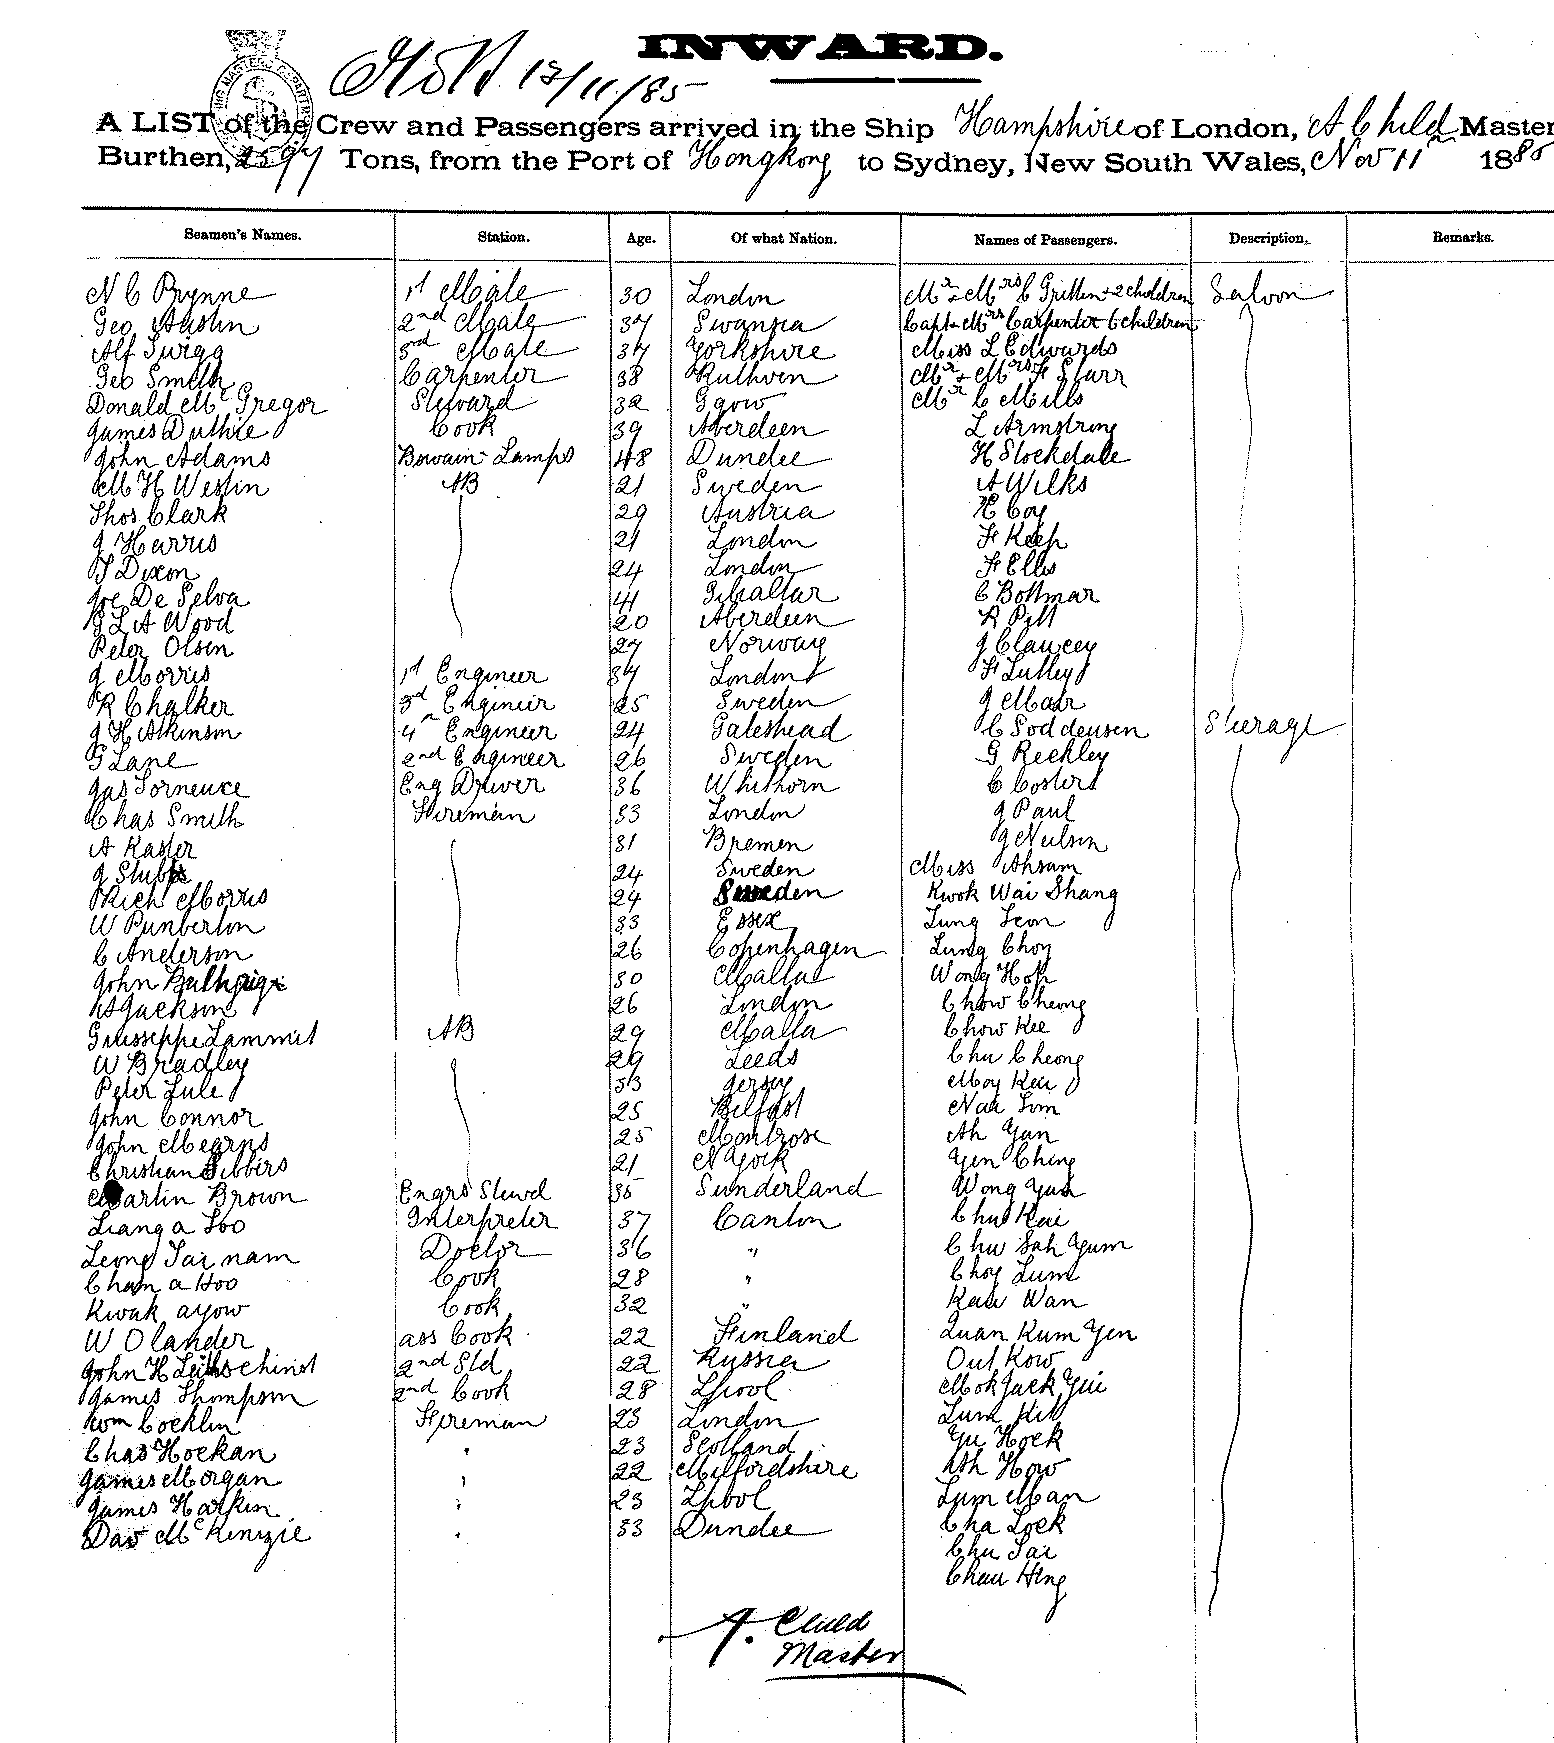 INWARD.
13/11/85
A LIST of the Crew and Passengers arrived in the Ship Hampshire of London, A Child Master
Burthen, 2597 Tons, from the Port of Hongkong to Sydney, New South Wales, Nov 11th 1885
Seamen's Names. Station. Age. Of what Nation. Names of Passengers. Description. Remarks.
N C Prynne 1st Mate 30 London Mr & Mrs C Gritten & 2 children Saloon
Geo Austin 2nd Mate 37 Swansea Capt & Mrs Carpenter 6 children
Alf Twigg 3rd Mate 37 Yorkshire Miss L Edwards
Geo Smith Carpenter 38 Ruthven Mr & Mrs F Starr
Donald McGregor Steward 32 Ggow Mr C Mills
James Duthie Cook 39 Aberdeen L Armstrong
John Adams Bowain Lamps 48 Dundee H Stockdale
M H Westin AB 21 Sweden A Wilks
Thos Clark 29 Austria H Coy
J Harris 21 London F Keep
T Dixon 24 London F Ellis
Joe De Selva 41 Gibaltar C Bottmar
G L A Wood 20 Aberdeen R Pitt
Peter Olsen 27 Norway J Clancey
J Morris 1st Engineer 34 London F Lulley
R Chalker 3rd Engineer 25 Sweden J Mair
J H Atkinson 4th Engineer 24 Gateshead C Soddeusen Steerage
G Lane 2nd Engineer 26 Sweden G Reckley
Jas Torneuce Eng Driver 36 Whithorn C Costers
Chas Smith Fireman 33 London J Paul
A Kaster 31 Bremen J Neilson
J Stubbs 24 Sweden Miss Ahsam
Rich Morris 24 Sweden Kwok Wai Shang
W Punberton 33 Essex Lung Leon
C Anderson 26 Copenhagen Lung Choy
John 30 Malta Wong Hop
A Jackson 26 London Chow Cheong
Guisseppe Lammit AB 29 Malta Chow Kee
W Bradley 29 Leeds Chu Cheong
Peter Lule 33 Jersey Moy Kai
John Connor 25 Belfast Naa Lim
John Mearns 25 Montrose Ah Yan
Christian Sibbirs 21 N York Yen Ching
Martin Brown Engrs Stewd 35 Sunderland Wong Yuen
Liang a Foo Interpreter 37 Canton Chu Kai
Leong Tai nam Doctor 36 " Chu Sah Yum
Cham a Hoo Cook 28 " Choy Lum
Kwak ayow Cook 32 " Kau Wan
W Olander ass Cook 22 Finland Quan Kum Yen
John H 2nd Std 22 Russia Out Kow
James Thompson 2nd Cook 28 Lpool Mok Jack Yui
Wm Cocklin Fireman 23 London Lum Kit
Chas Hockan " 23 Scotland Yu Hock
James Morgan " 22 Milfordshire Ah How
James Harkin " 23 Lpool Lum Man
Dav McKenzie " 33 Dundee Cha Lock
Chu Tai
Chau Hing
A. Child
Master